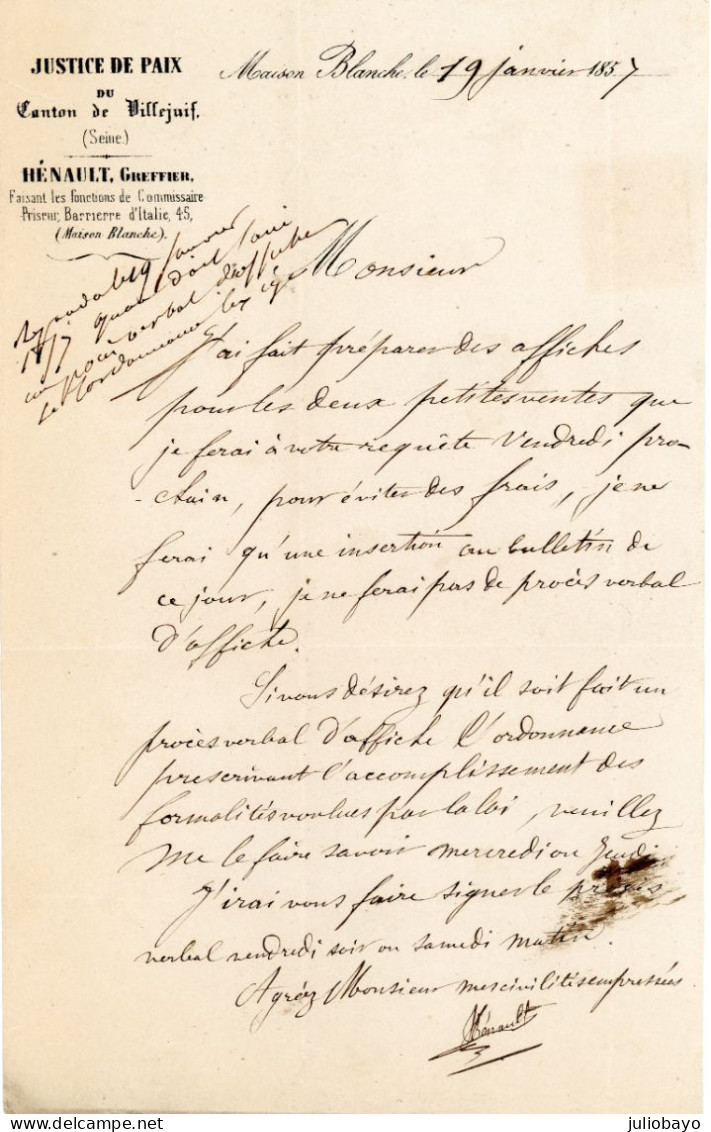 JUSTICE DE PAIX
DU
Canton de Villejuif.
(Seine.)
HÉNAULT, GREFFIER,
Faisant les fonctions de Commissaire
Priseur, Barrierre d'Italie, 45,
(Maison Blanche).
Maison Blanche, le 19 janvier 1857
Monsieur
J'ai fait préparer des affiches
pour les deux petites ventes que
je ferai à votre requête Vendredi pro-
-chain, pour éviter des frais, je ne
ferai qu'une insertion au bulletin de
ce jour, je ne ferai pas de procès verbal
d'affiche.
Si vous désirez qu'il soit fait un
procès verbal d'affiche l'ordonnance
prescrivant l'accomplissement des
formalités voulues par la loi, veuillez
me le faire savoir mercredi ou Jeudi.
J'irai vous faire signer le procès
verbal vendredi soir ou samedi matin.
Agréez Monsieur mes civilités empressées
Hénault
juliobayo